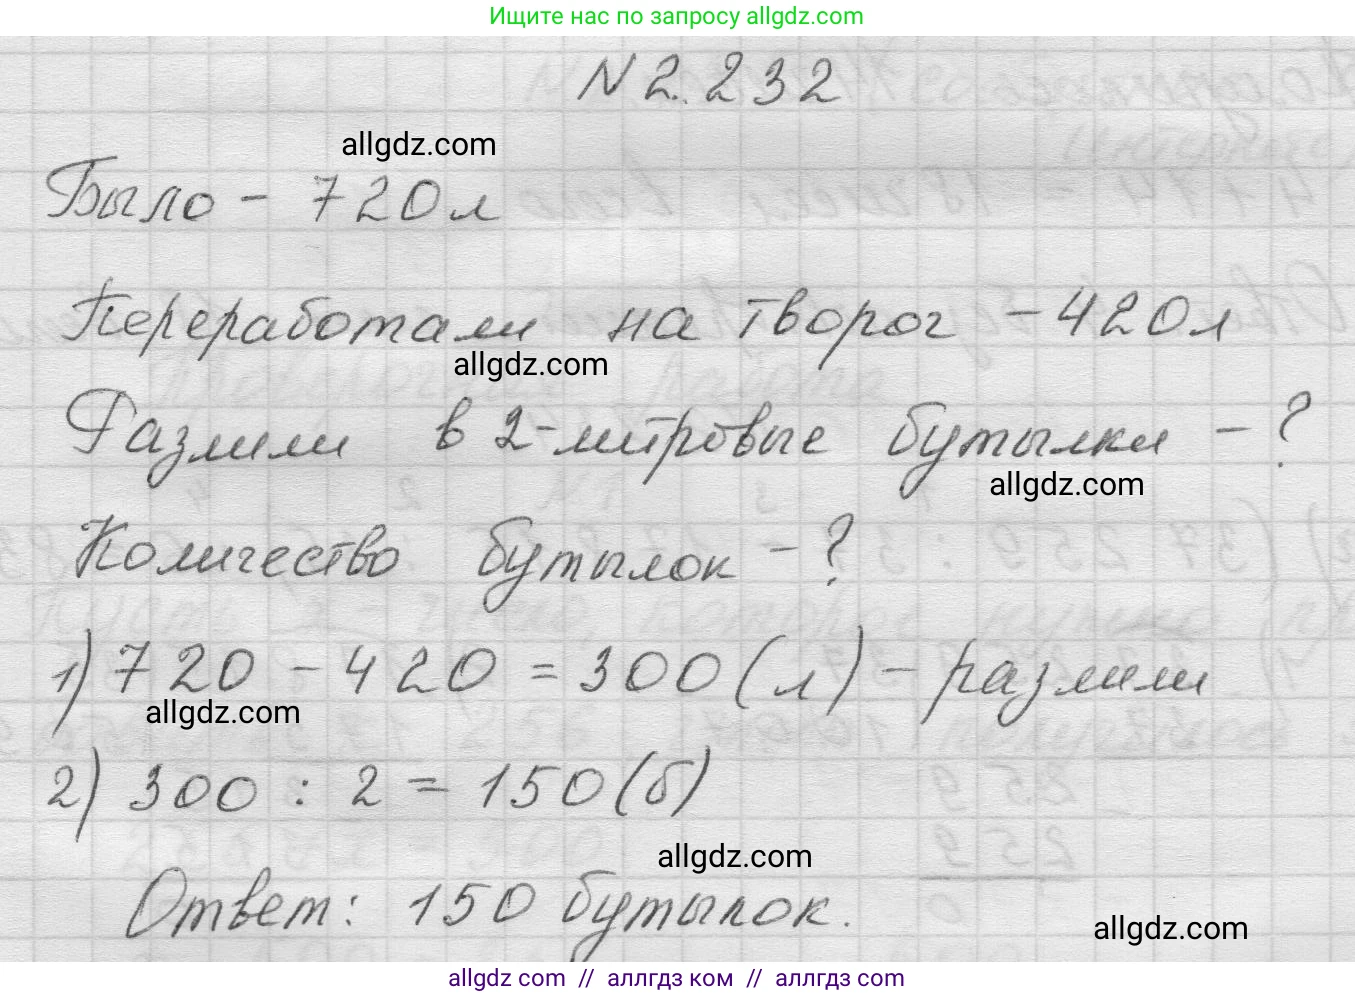 Ищите нас по запросу allgdz.com
N 2.232
allgdz.com
Было - 720л
Переработали на творог - 420л
allgdz.com
Разлили в 2-литровые бутылки - ?
allgdz.com
Количество бутылок - ?
1) 720 - 420 = 300 (л) - разлили
allgdz.com
2) 300 : 2 = 150 (б)
allgdz.com
Ответ: 150 бутылок.
allgdz.com
allgdz com // аллгдз ком // аллгдз com